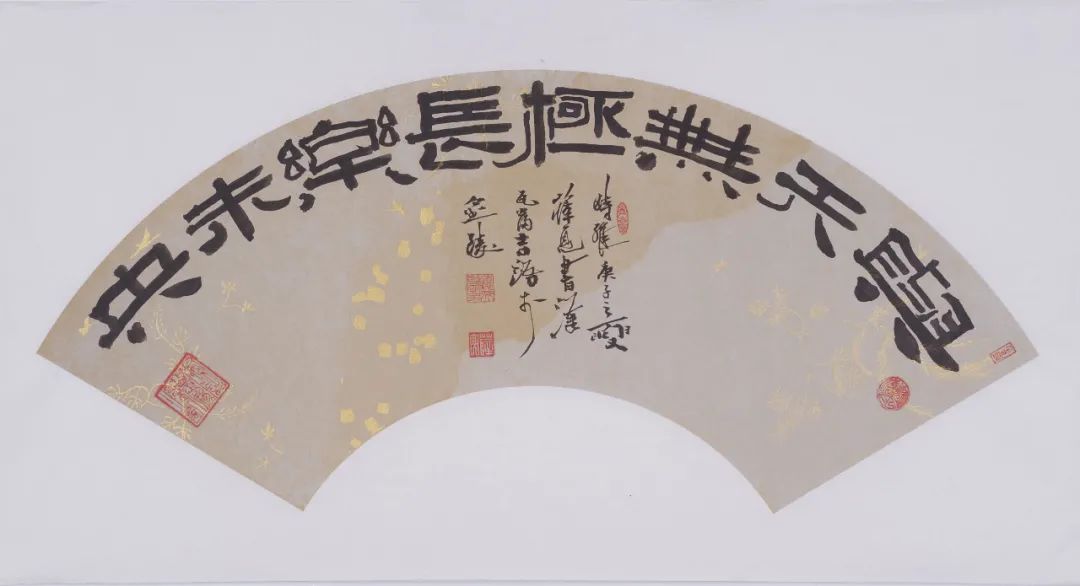 與天無極長樂未央
時維庚子之夏
書漢
瓦當吉語於
金陵